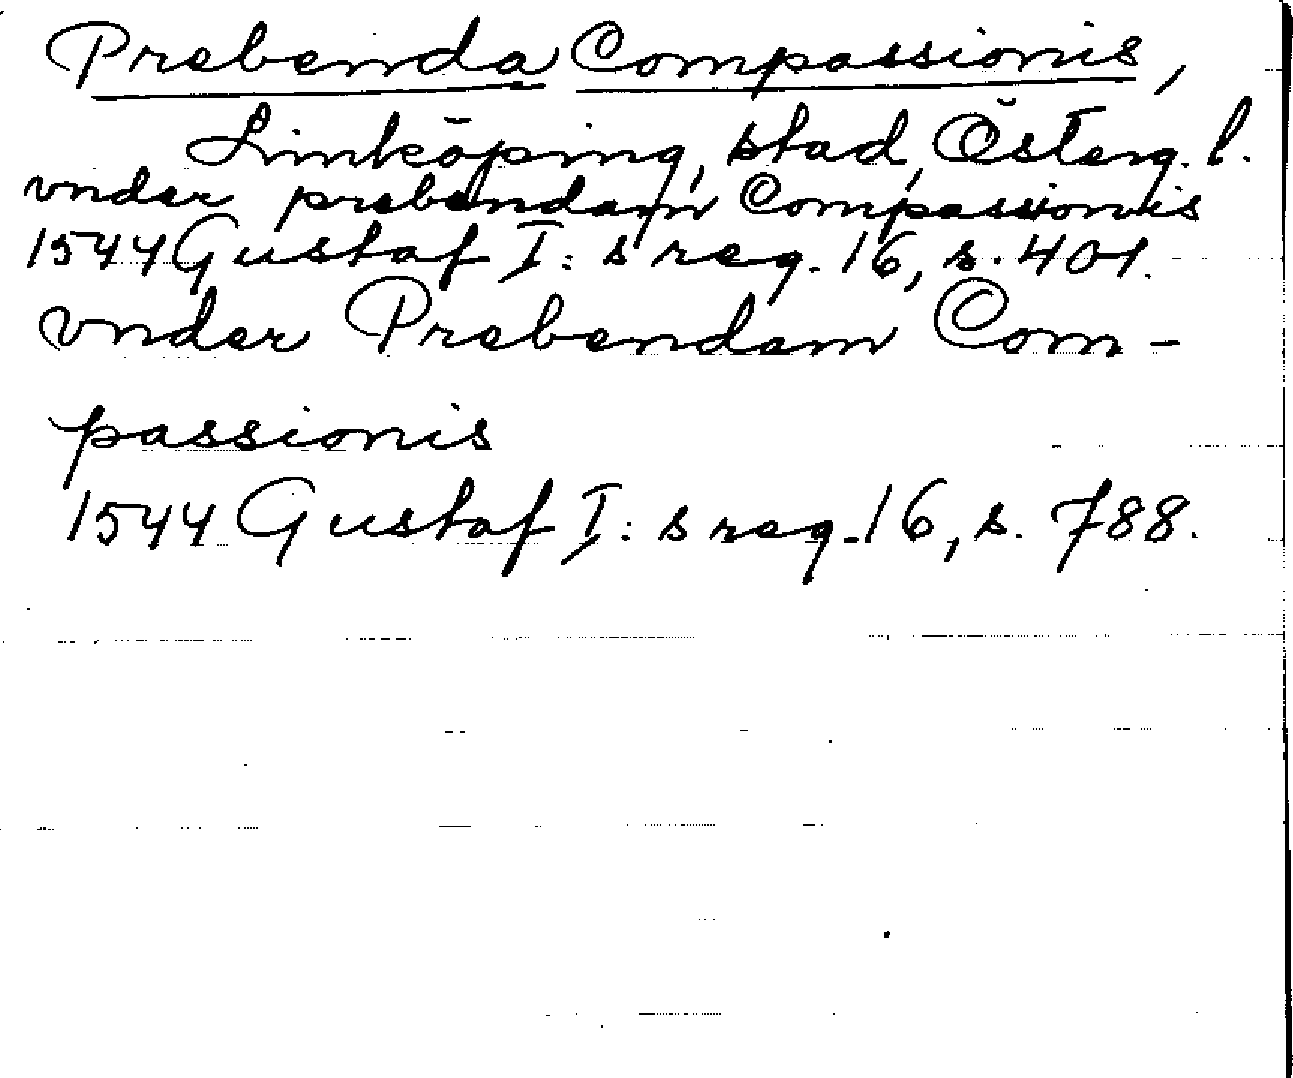 Prebenda Compassionis,
Linköping, stad, Österg. l.
vnder prebendam Compassionis
1544 Gustaf I: s reg. 16, s. 401.
vnder Prebendam Com-
passionis
1544 Gustaf I: s reg. 16, s. 788.